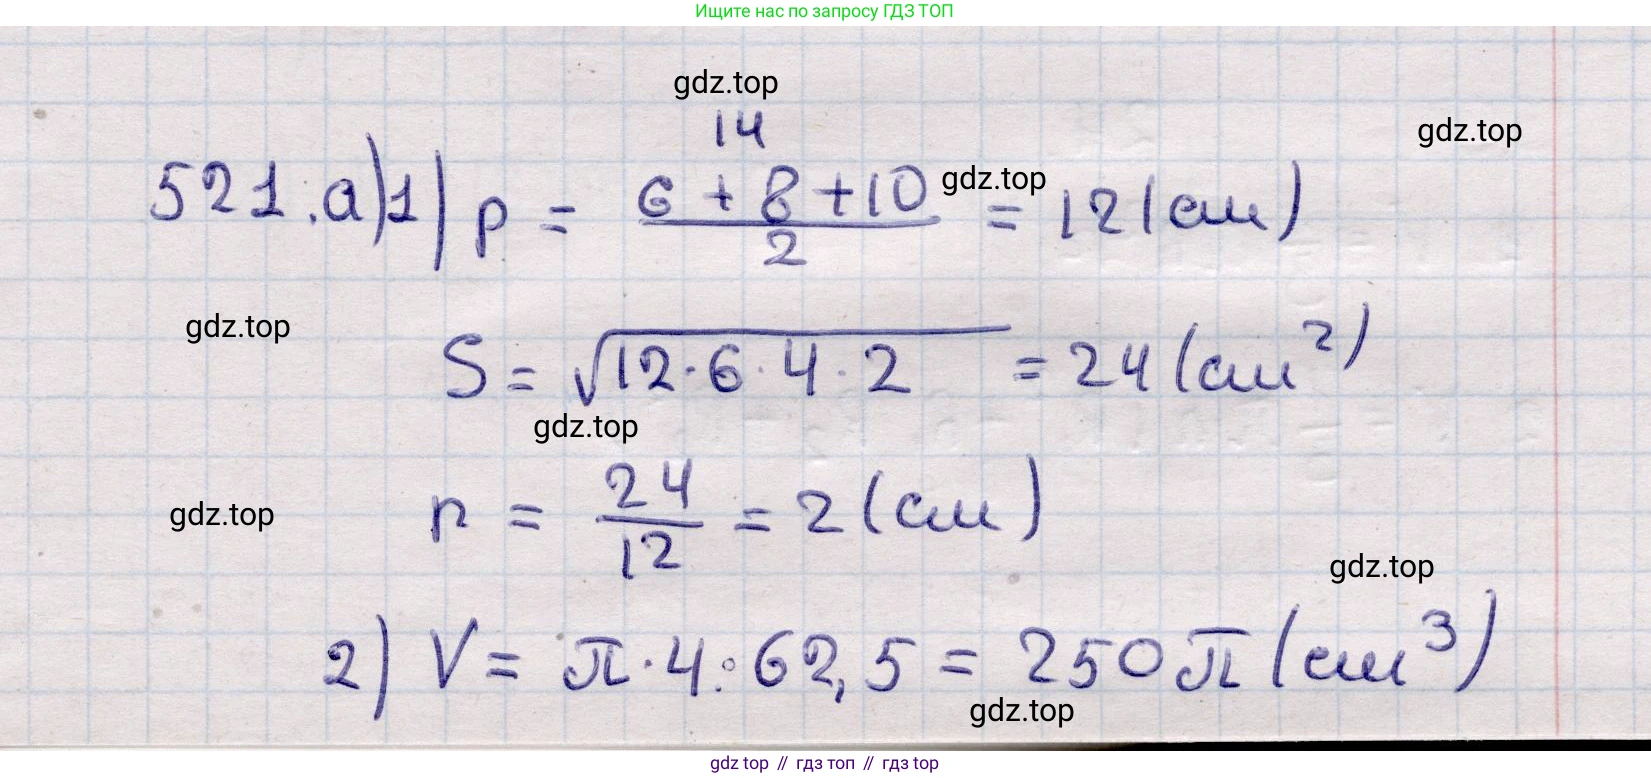 Ищите нас по запросу ГДЗ ТОП
gdz.top
14
gdz.top
521.а)1) p = (6 + 8 + 10)/2 = 12 (см)
gdz.top
gdz.top
S = √(12·6·4·2) = 24 (см²)
gdz.top
gdz.top
r = 24/12 = 2 (см)
gdz.top
2) V = π·4·62,5 = 250π (см³)
gdz.top
gdz top // гдз топ // гдз top